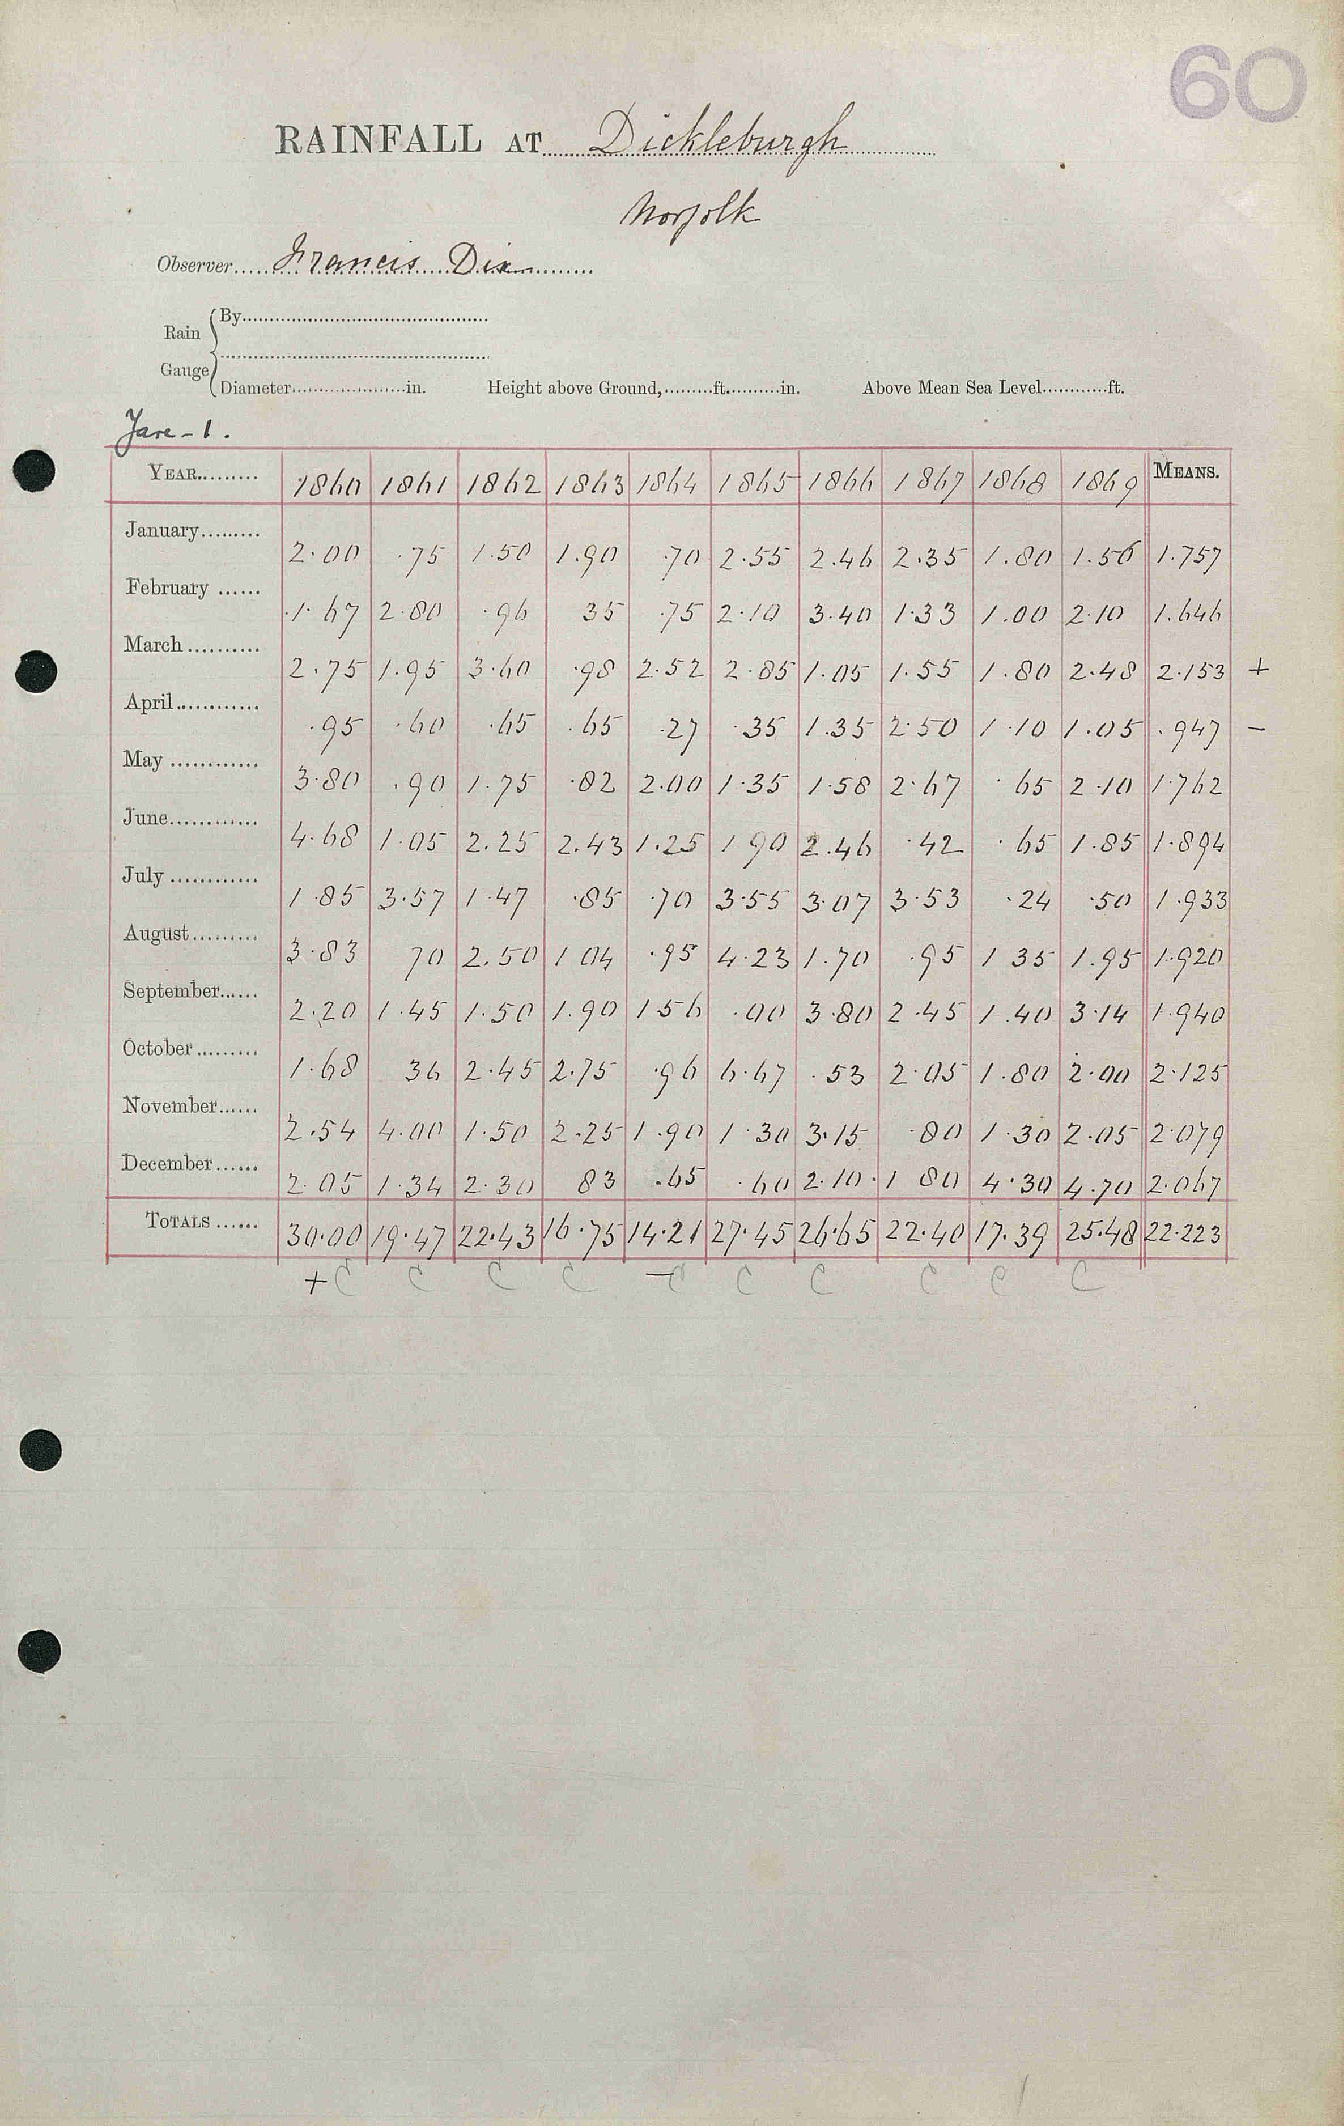 60
RAINFALL AT Dickleburgh
Norfolk
Observer Francis Dix
Rain Gauge { By
Diameter in. Height above Ground, ft. in. Above Mean Sea Level ft.
Yare - 1.
YEAR 1860 1861 1862 1863 1864 1865 1866 1867 1868 1869 MEANS.
January 2.00 .75 1.50 1.90 .70 2.55 2.46 2.35 1.80 1.56 1.757
February 1.67 2.80 .96 35 .75 2.10 3.40 1.33 1.00 2.10 1.646
March 2.75 1.95 3.60 .98 2.52 2.85 1.05 1.55 1.80 2.48 2.153 +
April .95 .60 .65 .65 .27 .35 1.35 2.50 1.10 1.05 .947 -
May 3.80 .90 1.75 .82 2.00 1.35 1.58 2.67 .65 2.10 1.762
June 4.68 1.05 2.25 2.43 1.25 1 90 2.46 .42 .65 1.85 1.894
July 1.85 3.57 1.47 .85 .70 3.55 3.07 3.53 .24 .50 1.933
August 3.83 70 2.50 1 04 .95 4.23 1.70 .95 1 35 1.95 1.920
September 2.20 1.45 1.50 1.90 1 56 .00 3.80 2.45 1.40 3.14 1.940
October 1.68 36 2.45 2.75 .96 6.67 .53 2.05 1.80 2.00 2.125
November 2.54 4.00 1.50 2.25 1.90 1.30 3.15 .80 1.30 2.05 2.079
December 2.05 1.34 2.30 83 .65 .60 2.10 1 80 4.30 4.70 2.067
TOTALS 30.00 19.47 22.43 16.75 14.21 27.45 26.65 22.40 17.39 25.48 22.223
+ C C C C - C C C C C C